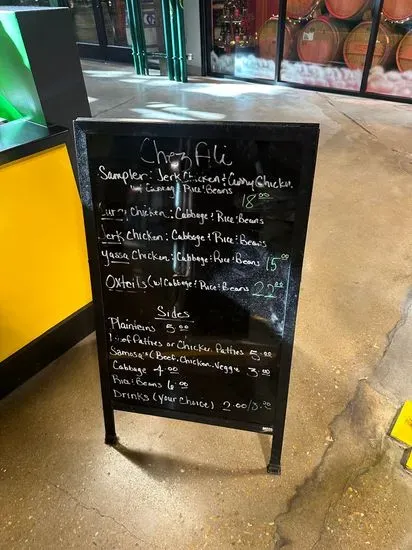 Chez Ali
Sampler: Jerk Chicken & Curry Chicken
w/ Cabbage & Rice & Beans
18.00
Curry Chicken: Cabbage & Rice & Beans
Jerk Chicken: Cabbage & Rice & Beans
Yassa Chicken: Cabbage & Rice & Beans 15.00
Oxtails (w/ Cabbage & Rice & Beans) 22.00
Sides
Plaintains 5.00
Beef Patties or Chicken Patties 5.00
Samosa's (Beef, Chicken, Veggie 3.00
Cabbage 4.00
Rice & Beans 6.00
Drinks (your choice) 2.00/3.00